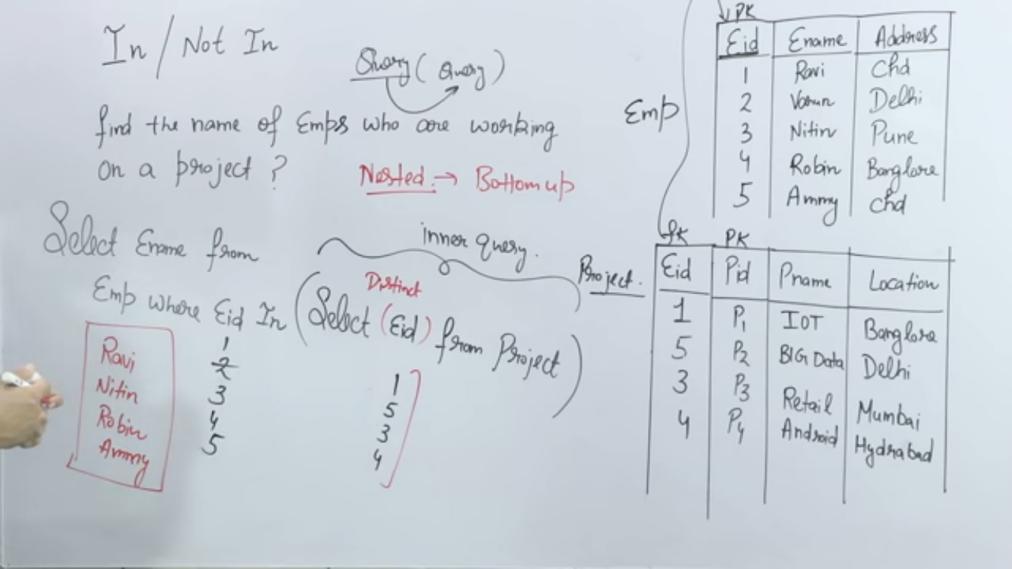 In / Not In
Query (Query)
find the name of Emps who are working
on a project ?
Nested → Bottom up
Select Ename from
inner query.
Emp where Eid In (Select Distinct (Eid) from Project)
Ravi
Nitin
Robin
Ammy
1
2
3
4
5
1
5
3
4
Emp
PK
Eid Ename Address
1 Ravi Chd
2 Varun Delhi
3 Nitin Pune
4 Robin Banglore
5 Ammy Chd
Project.
fk PK
Eid Pid Pname Location
1 P1 IOT Banglore
5 P2 BIG Data Delhi
3 P3 Retail Mumbai
4 P4 Android Hydrabad